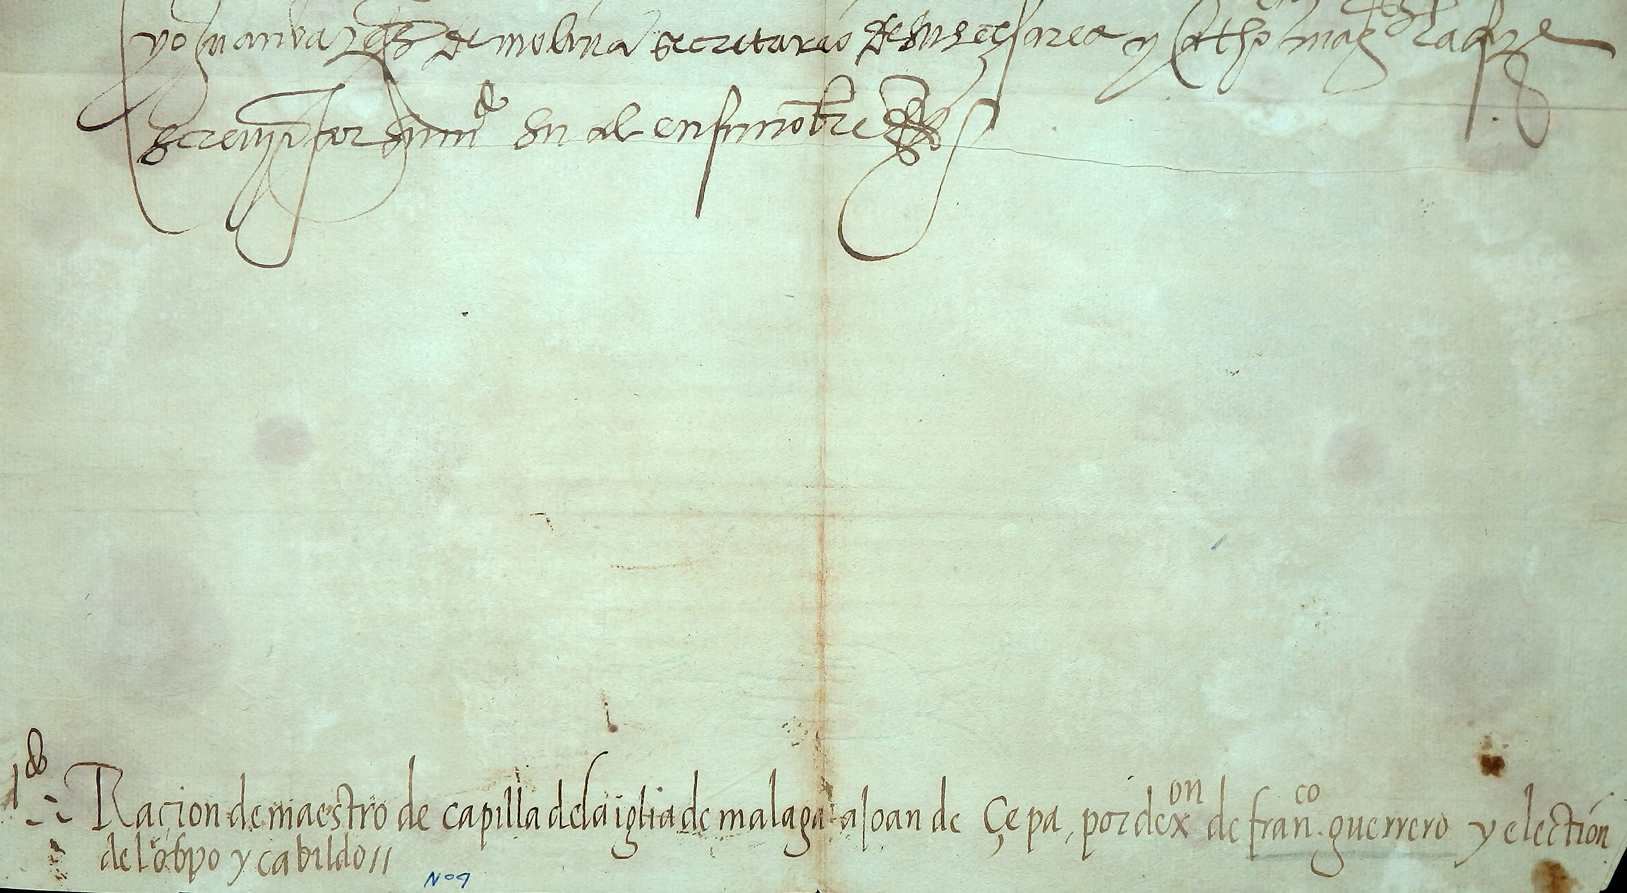 yo Juan bazqz de molina secretario de su cesarea y Catholicas magtades la fize
screvir por su mdo Su al en su nonbre
Racion de maestro de capilla de la iglia de malaga a Joan de Çepa, por dexon de franco. guerrero y election
del obpo y cabildo //
Nº 9